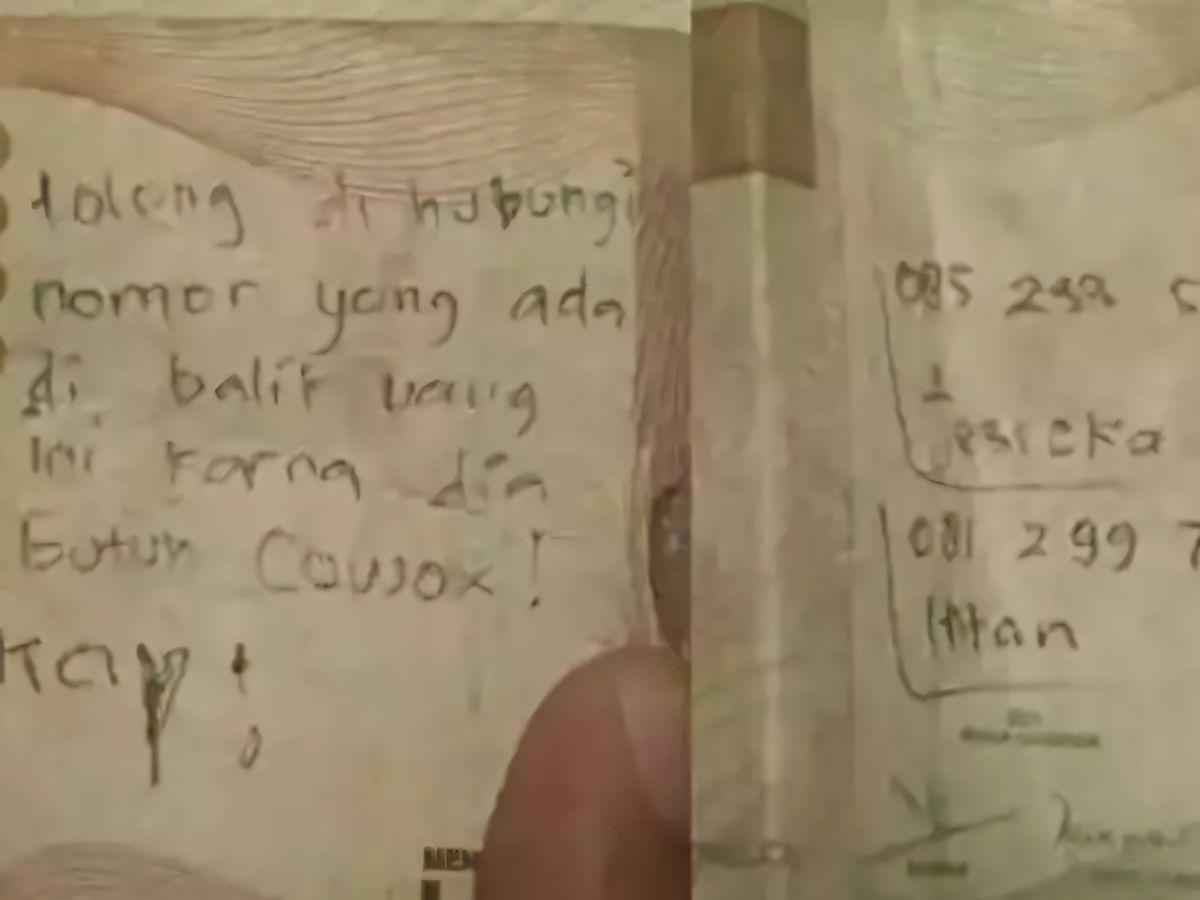 tolong di hubungi
nomor yang ada
di balik uang
ini karna dia
butuh Cowok!
085 298 5
Jesicka
081 299 7
Intan